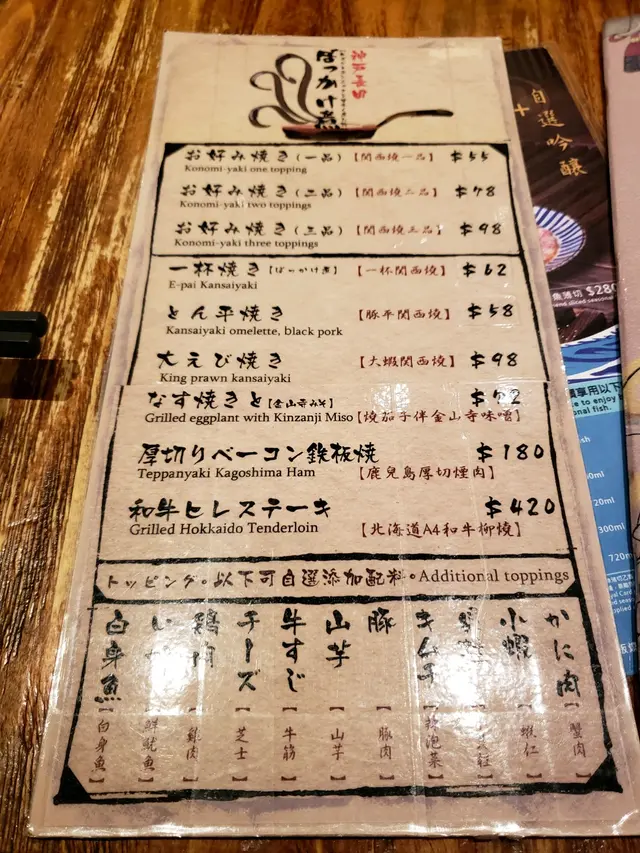 ぼっかけ煮
お好み焼き(一品)【関西燒一品】 $55
Konomi-yaki one topping
お好み焼き(二品)【関西燒二品】 $78
Konomi-yaki two toppings
お好み焼き(三品)【関西燒三品】 $98
Konomi-yaki three toppings
一杯焼き【ぼっかけ煮】【一杯関西燒】 $62
E-pai Kansaiyaki
とん平焼き【豚平関西燒】 $58
Kansaiyaki omelette, black pork
大えび焼き【大蝦関西燒】 $98
King prawn kansaiyaki
なす焼きと【金山寺みそ】 $72
Grilled eggplant with Kinzanji Miso【燒茄子伴金山寺味噌】
厚切りベーコン鉄板焼 $180
Teppanyaki Kagoshima Ham【鹿兒島厚切煙肉】
和牛ヒレステーキ $420
Grilled Hokkaido Tenderloin【北海道A4和牛柳燒】
トッピング。以下可自選添加配料。Additional toppings
かに肉【蟹肉】
小蝦【蝦仁】
キムチ【辣泡菜】
豚【豚肉】
山芋【山芋】
牛すじ【牛筋】
チーズ【芝士】
鶏肉【雞肉】
いか【鮮魷魚】
白身魚【白身魚】
自選吟釀
魚薄切 $280
300ml
720ml